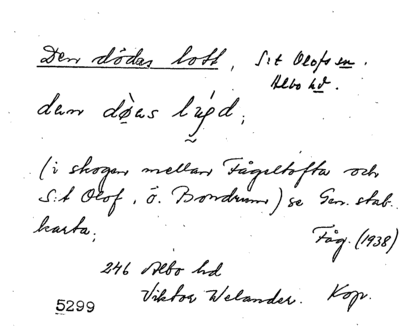 Den dödas lott, S:t Olofs sn.
Albo hd.
dan døas
(i skogen mellan Fågeltofta och
S:t Olof, ö. Bondrum) se Gen. stab.
karta;
Fåg. (1938)
246 Albo hd
Viktor Welander. Kop.
5299